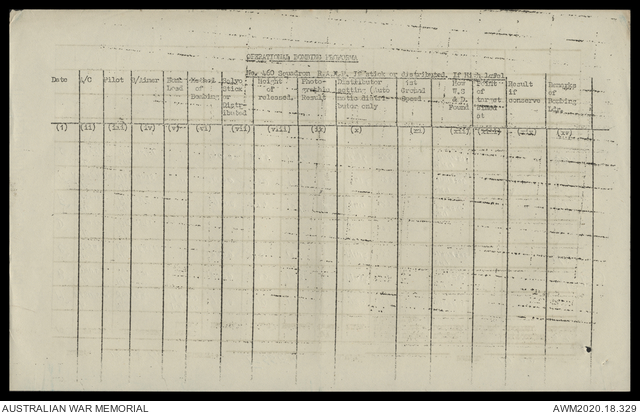 OPERATIONAL BOMBING PROFORMA
No. 460 Squadron R.A.A.F. If stick or distributed. If High level
Date A/C Pilot B/Aimer Bomb Load Method of Bombing Salvo Stick or Distributed Height of released. Photographic Result Distributor setting (Auto matic distributor only Ground Speed W.S & D. Found Point of target Result if conserve Remarks or Bombing Ldr.
(i) (ii) (iii) (iv) (v) (vi) (vii) (viii) (ix) (x) (xi) (xii) (xiii) (xiv) (xv)
AUSTRALIAN WAR MEMORIAL
AWM2020.18.329